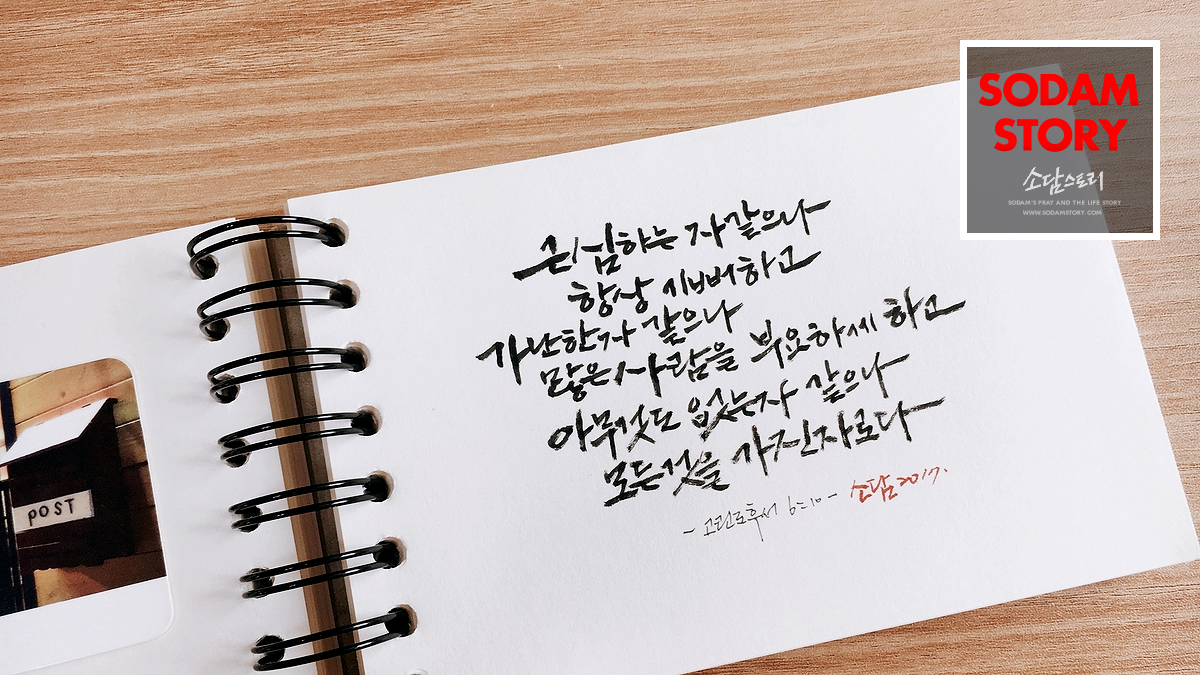 SODAM
STORY
소담스토리
SODAM'S PRAY AND THE LIFE STORY
WWW.SODAMSTORY.COM
근심하는 자같으나
항상 기뻐하고
가난한자 같으나
많은사람을 부요하게 하고
아무것도 없는자 같으나
모든것을 가진자로다
- 고린도후서 6:10 - 소담 2017.
POST